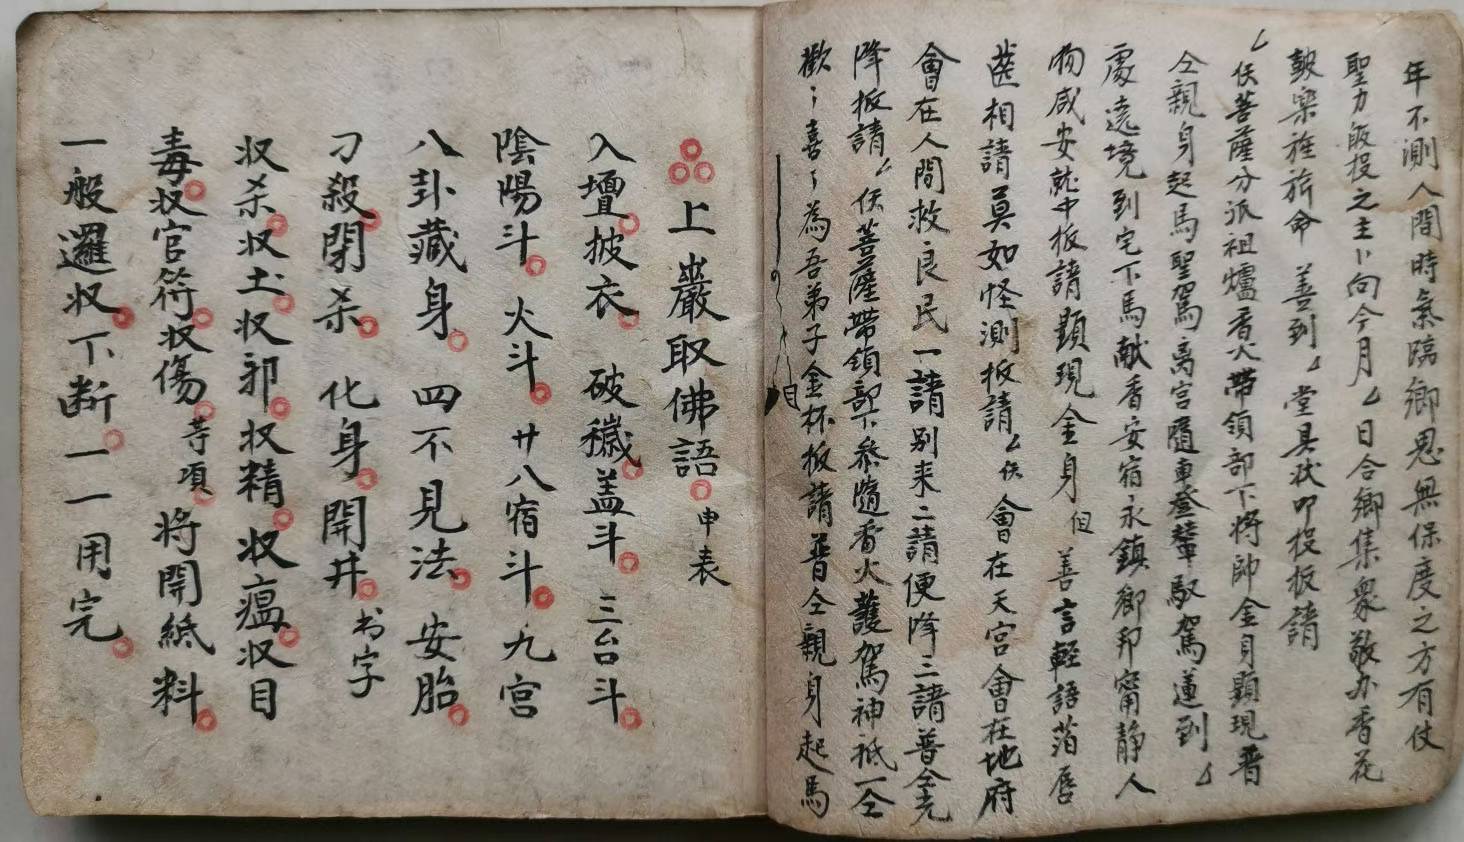 年不測人間時氣臨鄉思無保度之方有仗
聖力皈投之主卜向今月厶日合鄉集衆敬办香花
皷樂旌旂命善到厶堂具状叩投扳請
厶伕菩薩分派祖爐香火帶領部下将帥金身顯現普
仝親身起馬聖駕离宮隨車登輦馭駕蓮到厶
處遠境到宅下馬献香安宿永鎮鄉邦甯静人
物咸安就中扳請顕現金身但善言輕語萡唇
相請莫如怪測扳請厶伕會在天宮會在地府
會在人間救良民一請别来二請便降三請普仝光
降扳請厶伕菩薩帶領部下叅隨香火護駕神祇一仝
歡〻喜〻為吾弟子金杯扳請普仝親身起馬
上巖取佛語申表
入壇披衣 破穢盖斗 三台斗
陰陽斗 火斗 廿八宿斗 九宮
八卦藏身 四不見法 安胎
刀殺閉杀 化身 開井 书字
収杀収土収邪収精収瘟収目
毒収官符収傷等項 将開紙料
一般邏収下断一一用完